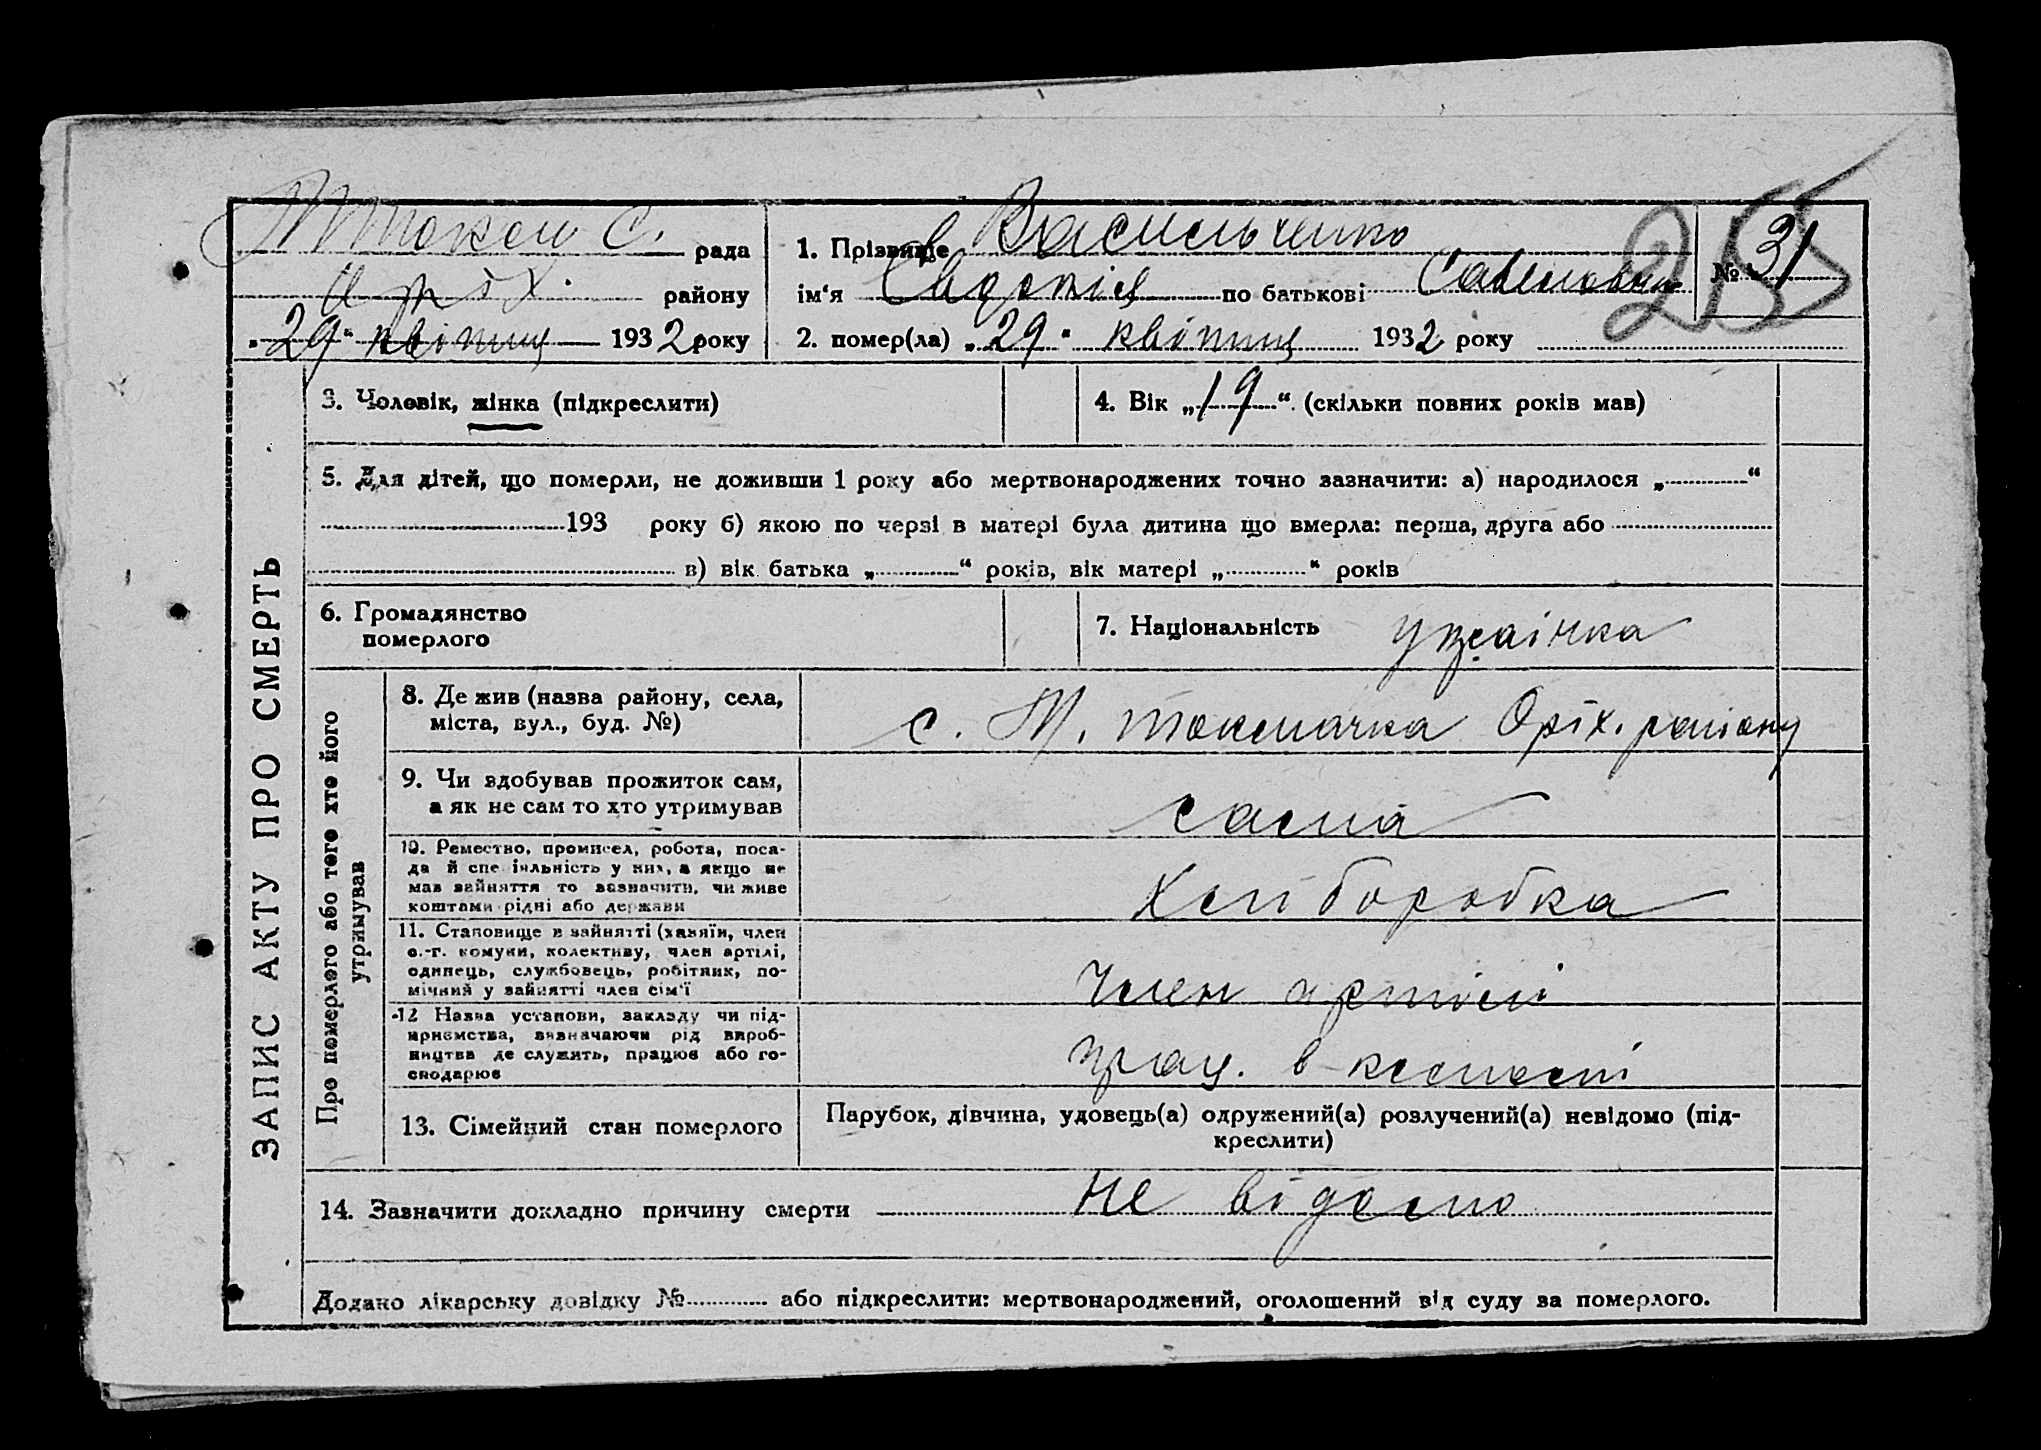 М Токм С. рада
Оріх. району
„29“ квітня 1932 року
1. Прізвище Васильченко
ім‘я Євдокія по батькові Савеловна
№ 31
255
2. помер(ла) „29“ квітня 1932 року
ЗАПИС АКТУ ПРО СМЕРТЬ
3. Чоловік, жінка (підкреслити)
4. Вік „19“ (скільки повних років мав)
5. Для дітей, що померли, не доживши 1 року або мертвонароджених точно зазначити: а) народилося „ “
193 року б) якою по черзі в матері була дитина що вмерла: перша, друга або
в) вік батька „ “ років, вік матері „ “ років
6. Громадянство
померлого
7. Національність українка
Про померлого або того хто його
утримував
8. Де жив (назва району, села,
міста, вул., буд. №)
с. М. Токмачка Оріх. району
9. Чи здобував прожиток сам,
а як не сам то хто утримував
сама
10. Ремество, промисел, робота, поса-
да й спеціяльність у них, а якщо не
мав зайняття то зазначити, чи живе
коштами рідні або держави
Хліборобка
11. Становище в зайнятті (хазяїн, член
с.-г. комуни, колективу, член артілі,
одинець, службовець, робітник, по-
мічний у зайнятті член сім‘ї
Член артілі
12 Назва установи, закладу чи під-
приємства, визначаючи рід вироб-
ництва де служить, працює або го-
сподарює
прац. в
13. Сімейний стан померлого
Парубок, дівчина, удовець(а) одружений(а) розлучений(а) невідомо (під-
креслити)
14. Зазначити докладно причину смерти не відомо
Додано лікарську довідку № або підкреслити: мертвонароджений, оголошений від суду за померлого.